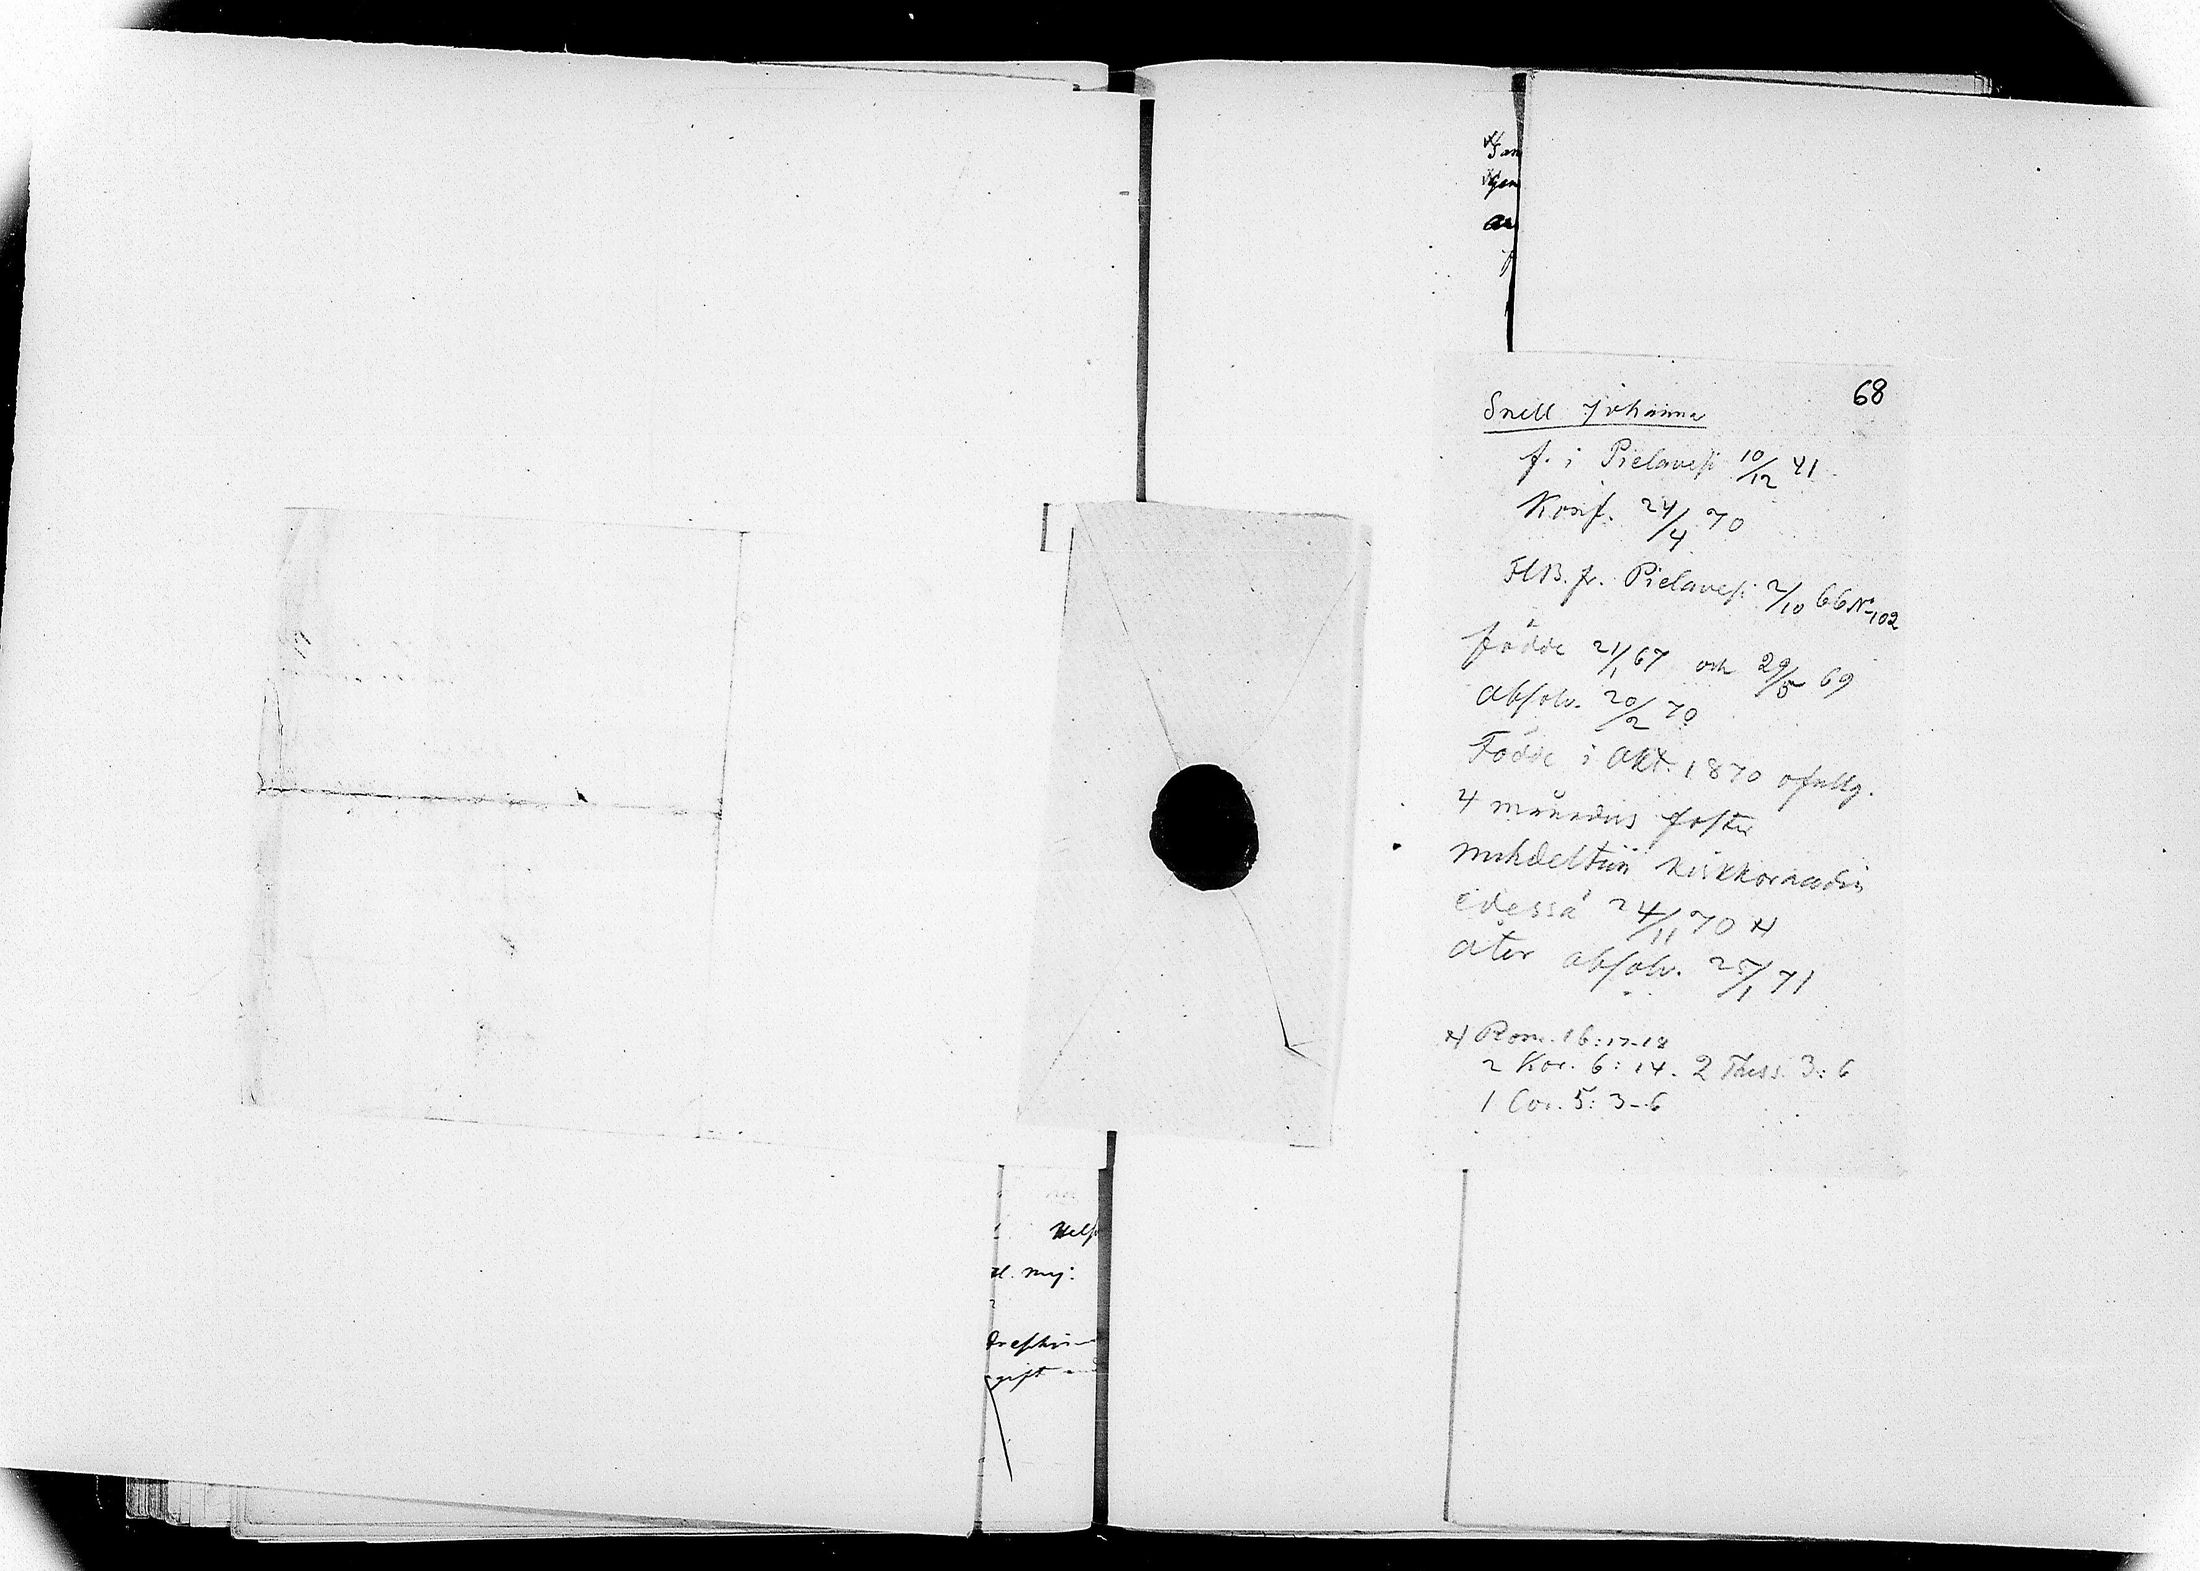 68
Snell Johanna
f. i Pielavesi 10/12 41
Konf. 24/4 70
FlB. fr. Pielavesi 2/10 66 No 102
födde 21/1 67 och 29/5 69
absolv. 20/2 70
Födde i Okt. 1870 ofullg.
4 månaders foster
nuhdeltiin kirkkoraadin
edessä 24/11 70 #
åter absolv. 25/1 71
# Rom. 16:17-18
2 Kor. 6:14. 2 Thess. 3:6
1 Cor. 5:3-6
Helf
d. maj:
gift